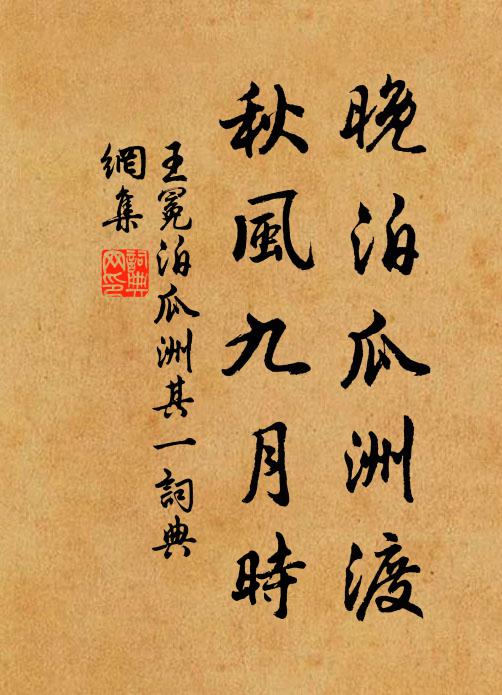 晚泊瓜洲渡
秋風九月時
王冕泊瓜洲其一詞典
網集
詞典
网印